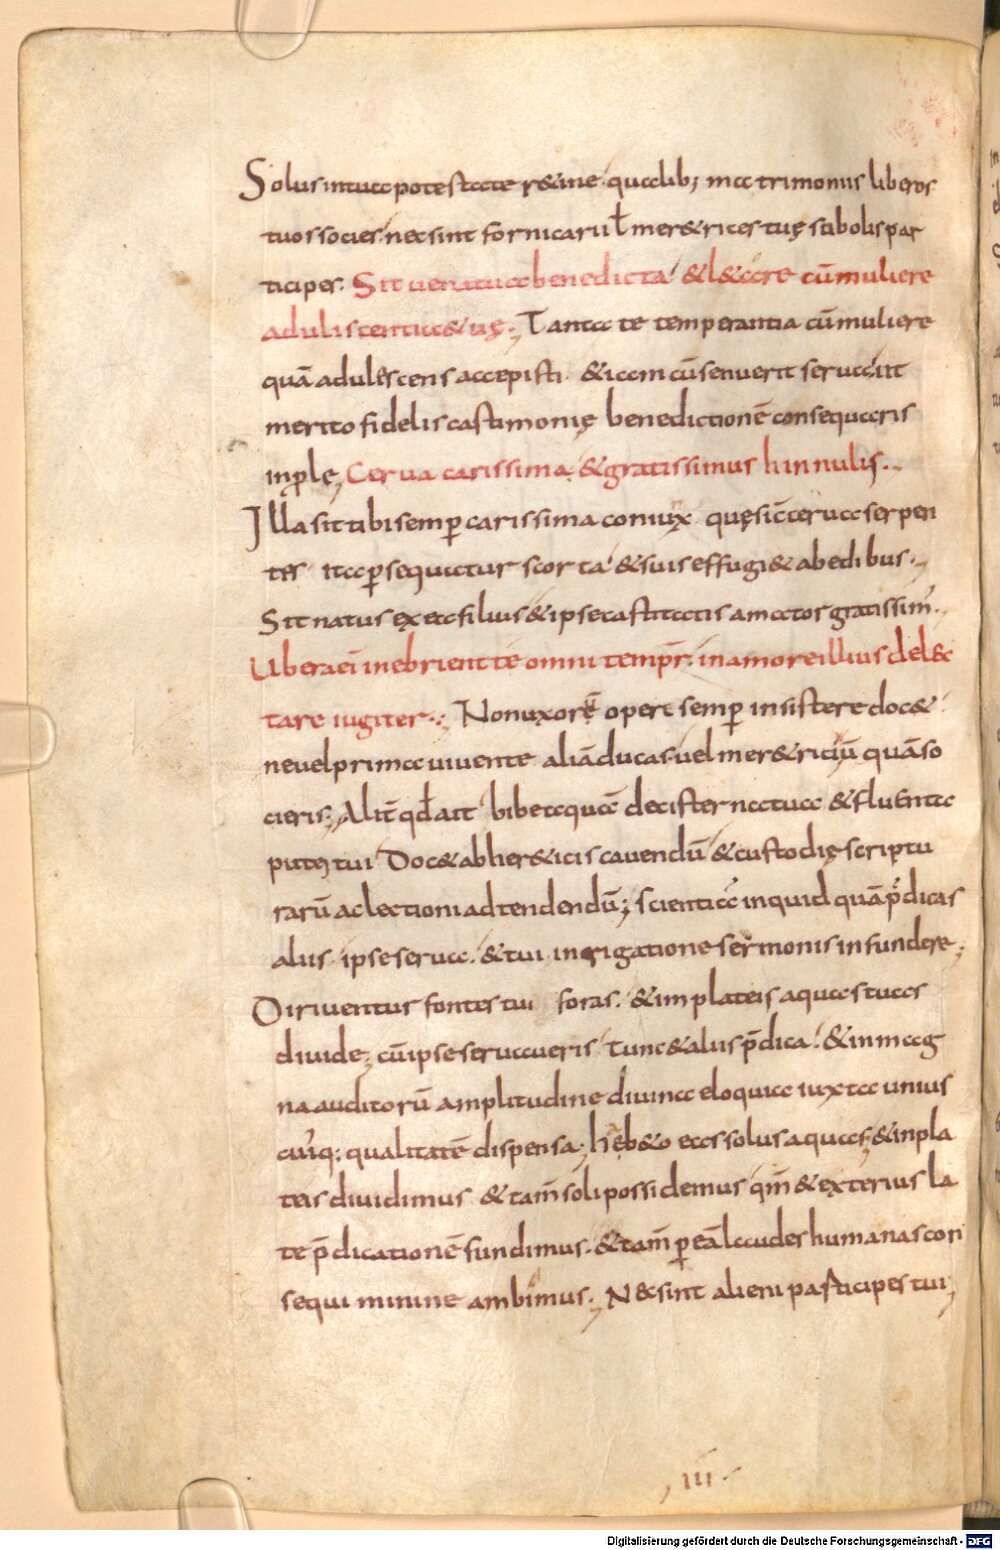 Solus intua potestate r&ine quelib; matrimoniis liberos
tuos socies nec sint fornicarii ł mer&rices tuę stibolis par
ticipes. Sit uena tua benedicta &l&are cū muliere
aduliscentiae uę. Tanta te temperantia cū muliere
quā adulescens accepisti. &iam cū senuerit serua ut
merito fidelis castimonię benedictionē consequaris
inprole, Cerua carissima &gratissimus hinnulus.
Illa sit tibi semꝑ carissima coniux quę sic̄ cerua serpen
tes ita ꝑsequitur scorta &suis effugi& ab edibus.
Sit natus ex ea filius &ipse castitatis amator gratissim᾽.
Ubera ei᾽ inebrient te omni tempr̄. in amore illius del&c
tare iugiter. Non uxorē operi semꝑ insistere doc&
ne uel prima uiuente aliā ducas uel mer&riciū quā so
cieris; Alit̄ qđ ait bibe aquā decisterna tua &fluenta
putei tui Doc& ab her&icis cauendū &custodię scriptu
rarū ac lectioni adtendendū; scientiā inquid quā p̄dicas
aliis ipse serua. &tui inrigatione sermonis infundere;
Diriuentur fontes tui foras. &in plateis aquas tuas
diuide; cū ipse seruaueris tunc &aliis p̄dica. &in mag
na auditorū amplitudine diuina eloquia iuxta unius
cui᾽q; qualitatē dispensa; hęb&o eas solus aquas; &inpla
teis diuidimus &tam̄ soli possidemus qm̄ &exterius la
te p̄dicationē fundimus. &tam̄ ꝑ eā laudes humanas con
sequi minime ambimus. N& sint alieni participes tui,
III
Digitalisierung gefördert durch die Deutsche Forschungsgemeinschaft - DFG